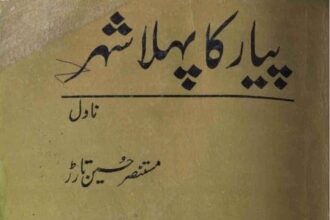 پیار کا پہلا شہر
ناول
مستنصر حسین تارڑ